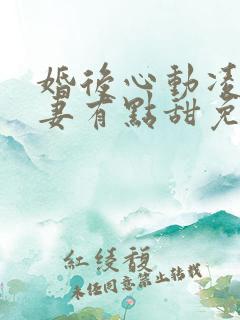 婚後心動凌
妻有點甜免
紅綾馥
未任同意禁止轉載